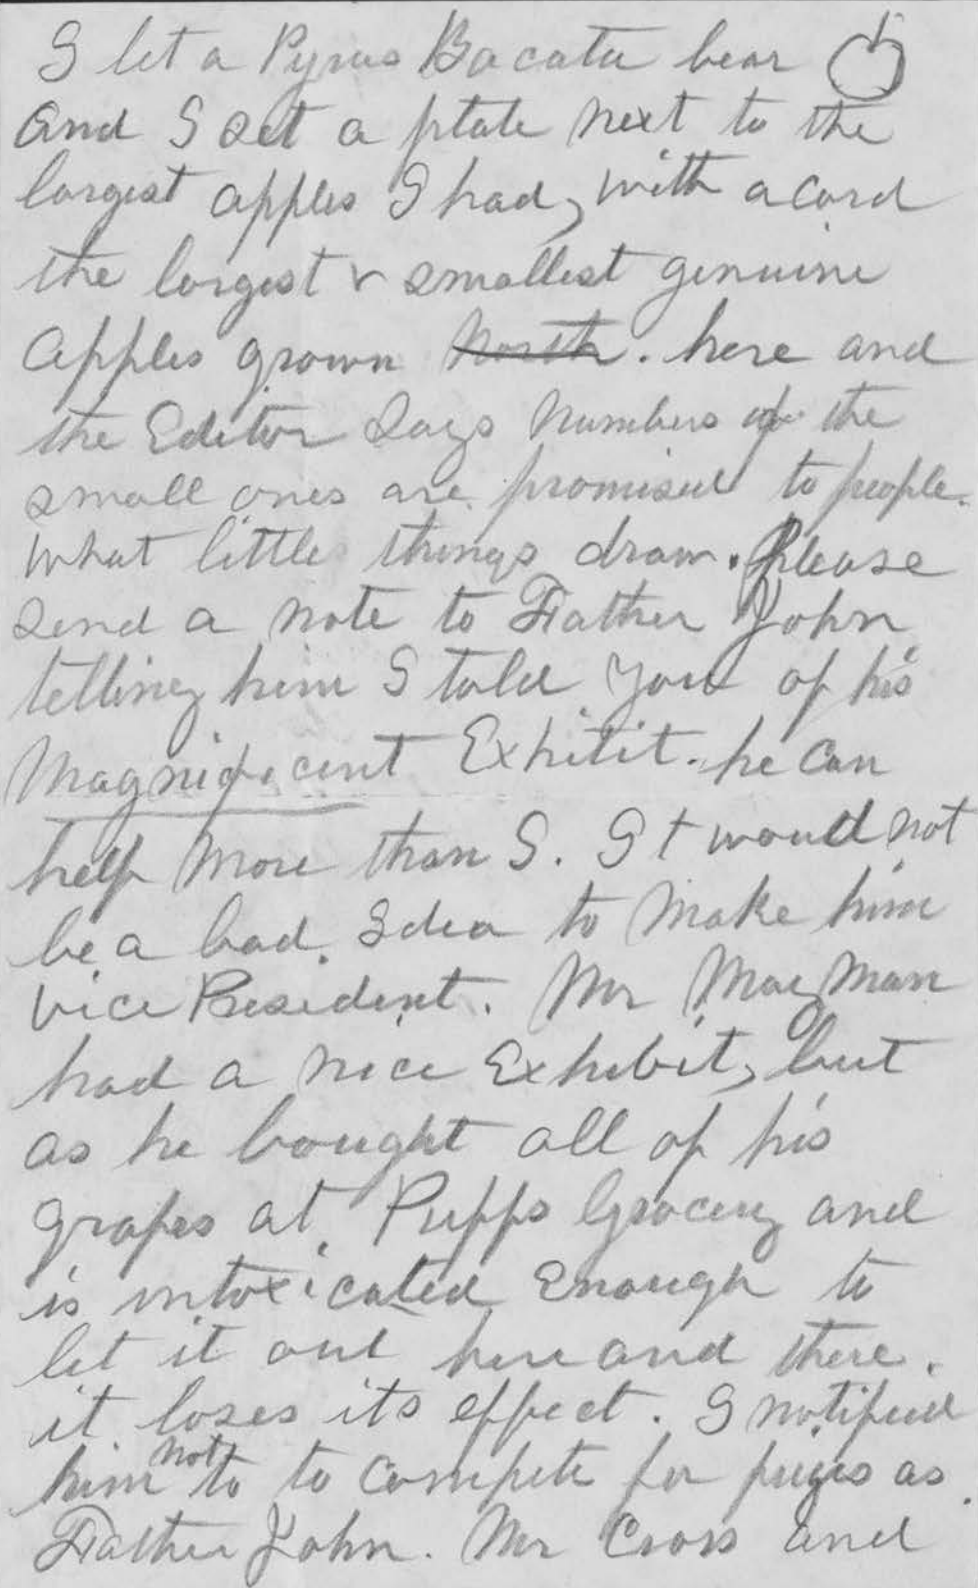 I let a Pyrus Bacata bear
and I set a plate next to the
largest apples I had, with a card
the largest & smallest genuine
apples grown North. here and
the Editor says numbers of the
small ones are promised to people.
What little things draw. Please
send a note to Father John
telling him I told you of his
Magnificent Exhibit. he can
help more than I. It would not
be a bad Idea to make him
Vice President. Mr Moegman
had a nice Exhibit, but
as he bought all of his
grapes at Puffs Grocery and
is intoxicated Enough to
let it out here and there.
it loses its effect. I notified
him not to to compete for prizes as
Father John. Mr Cross and